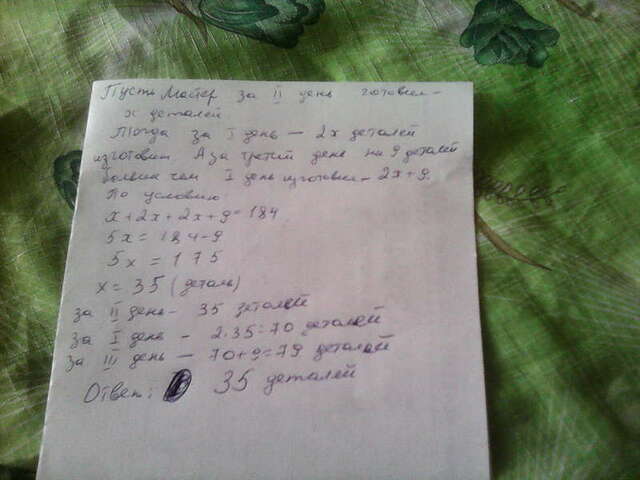 Пусть Мастер за II день готовил-
х деталей
Тогда за I день - 2х деталей
изготовил А за третий день на 9 деталей
больше чем I день изготовил - 2х+9.
По условию
х+2х+2х+9=184
5х=184-9
5х=175
х=35 (деталь)
за II день- 35 деталей
за I день - 2·35=70 деталей
за III день - 70+9=79 деталей
Ответ: 35 деталей